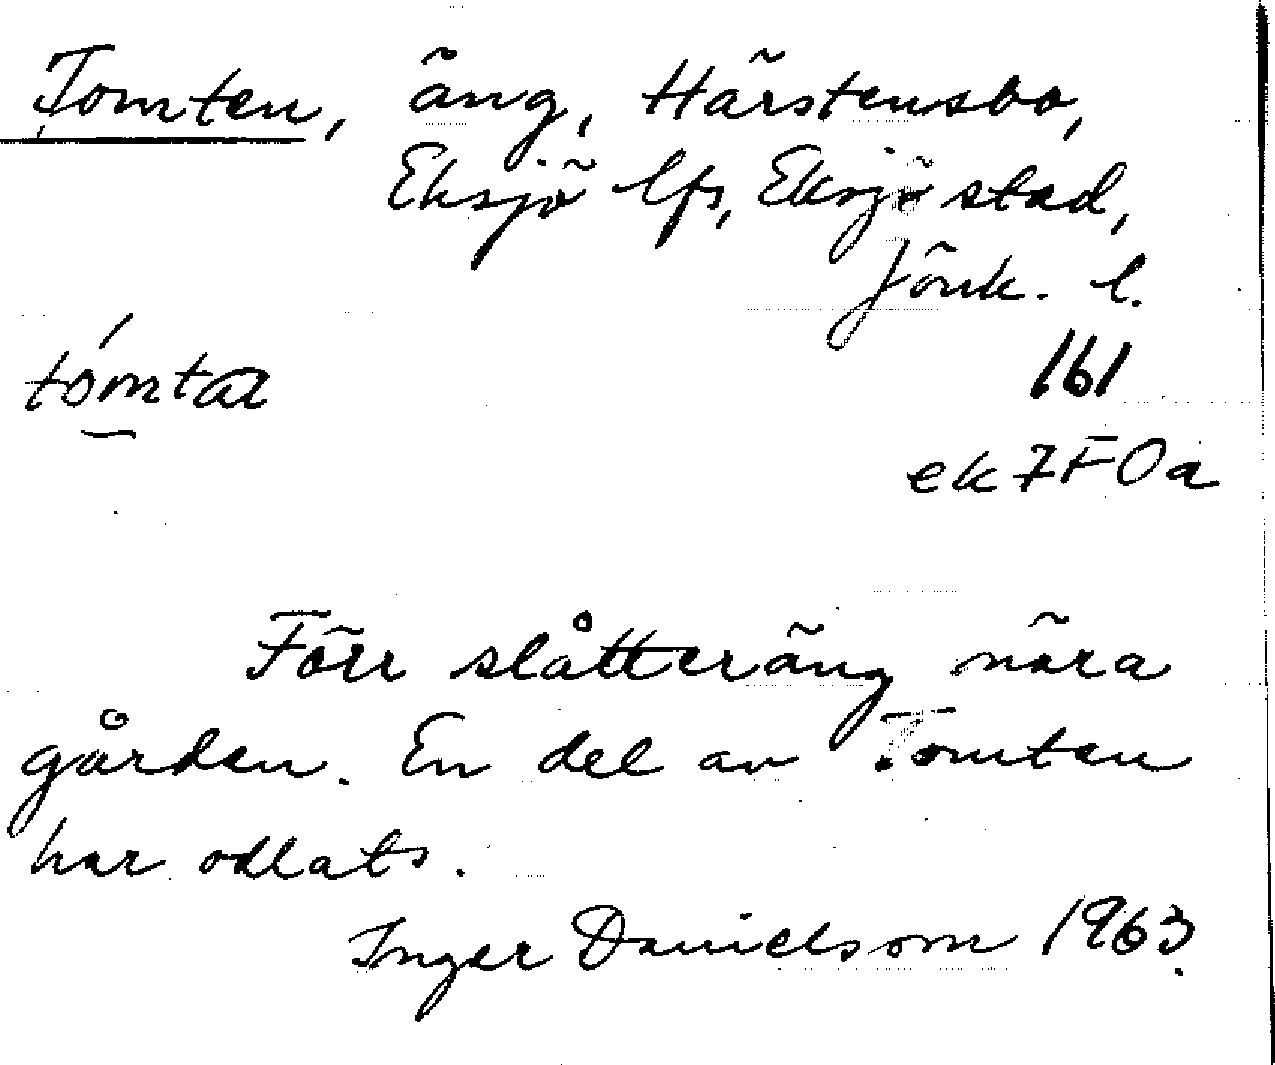 Tomten, äng, Härstensbo,
Eksjö lfs, Eksjö stad,
Jönk. l.
tómta
161
ek 7F0a
Förr slåtteräng nära
gården. En del av Tomten
har odlats.
Inger Danielsson 1963.